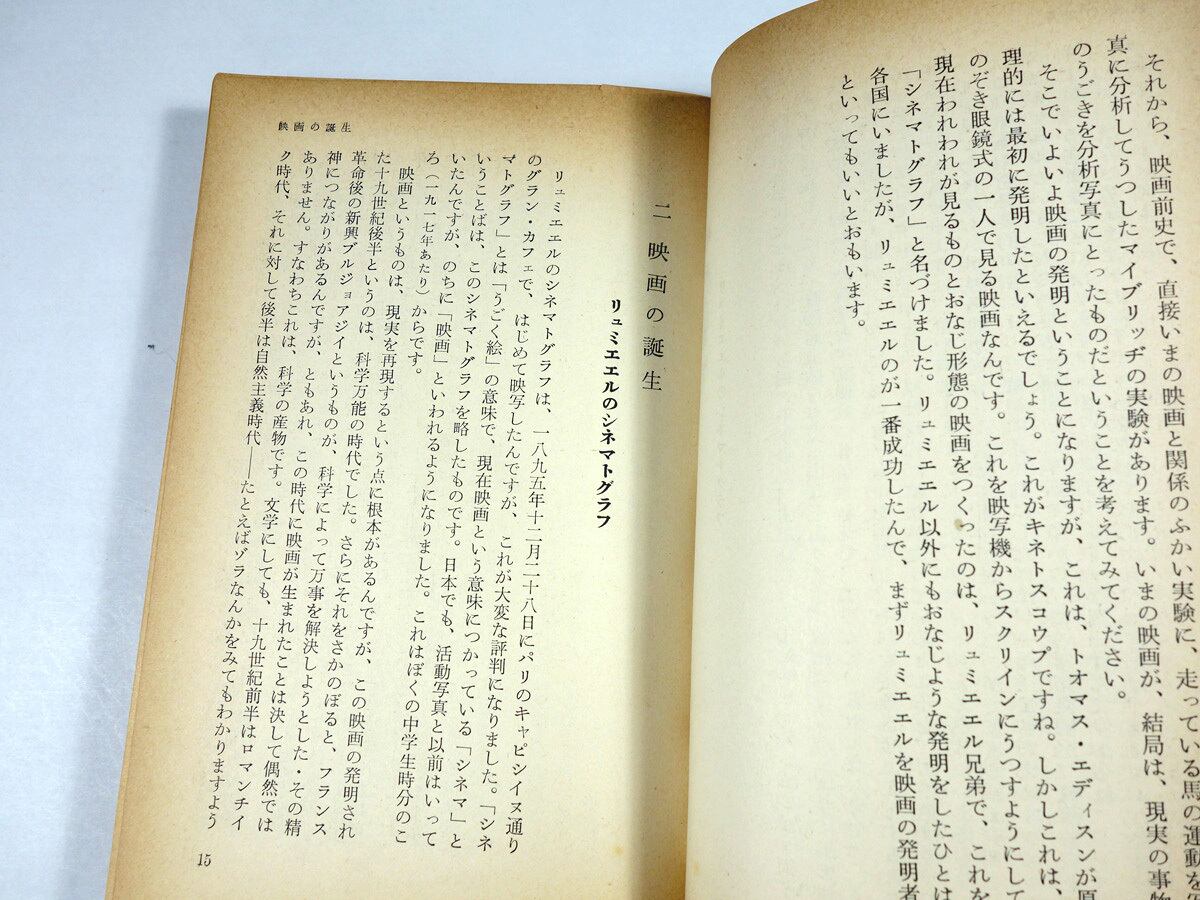 それから、映画前史で、直接いまの映画と関係のふかい実験に、走っている馬の運動を
真に分析してうつしたマイブリッヂの実験があります。いまの映画が、結局は、現実の事物
のうごきを分析写真にとったものだということを考えてみてください。
そこでいよいよ映画の発明ということになりますが、これは、トオマス・エディスンが原
理的には最初に発明したといえるでしょう。これがキネトスコウプですね。しかしこれは、
のぞき眼鏡式の一人で見る映画なんです。これを映写機からスクリインにうつすようにして
現在われわれが見るものとおなじ形態の映画をつくったのは、リュミエエル兄弟で、これを
「シネマトグラフ」と名づけました。リュミエエル以外にもおなじような発明をしたひとは
各国にいましたが、リュミエエルのが一番成功したんで、まずリュミエエルを映画の発明者
といってもいいとおもいます。
二 映画の誕生
リュミエエルのシネマトグラフ
リュミエエルのシネマトグラフは、一八九五年十二月二十八日にパリのキャピシイヌ通り
のグラン・カフェで、はじめて映写したんですが、これが大変な評判になりました。「シネ
マトグラフ」とは「うごく絵」の意味で、現在映画という意味につかっている「シネマ」と
いうことばは、このシネマトグラフを略したものです。日本でも、活動写真と以前はいって
いたんですが、のちに「映画」といわれるようになりました。これはぼくの中学生時分のこ
ろ(一九一七年あたり)からです。
映画というものは、現実を再現するという点に根本があるんですが、この映画の発明され
た十九世紀後半というのは、科学万能の時代でした。さらにそれをさかのぼると、フランス
革命後の新興ブルジョアジイというものが、科学によって万事を解決しようとした・その精
神につながりがあるんですが、ともあれ、この時代に映画が生まれたことは決して偶然では
ありません。すなわちこれは、科学の産物です。文学にしても、十九世紀前半はロマンチイ
ク時代、それに対して後半は自然主義時代――たとえばゾラなんかをみてもわかりますよう
映画の誕生
15